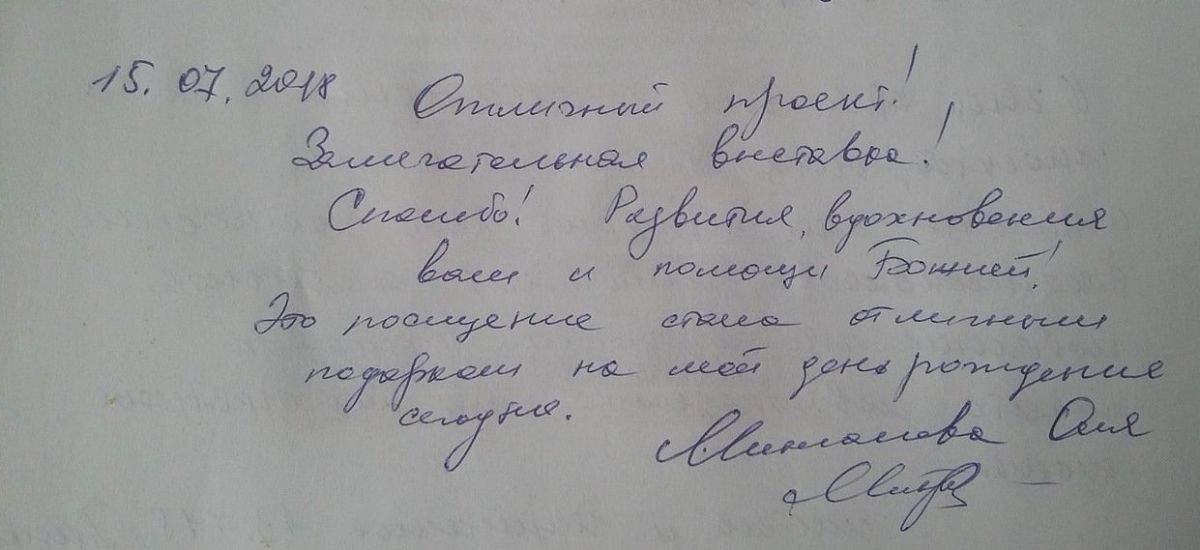 15.07.2018 Отличный проект!
Замечательная выставка!
Спасибо! Развития, вдохновения
вам и помощи Божией!
Это посещение стало отличным
подарком на мой день рождения
сегодня.
Оля